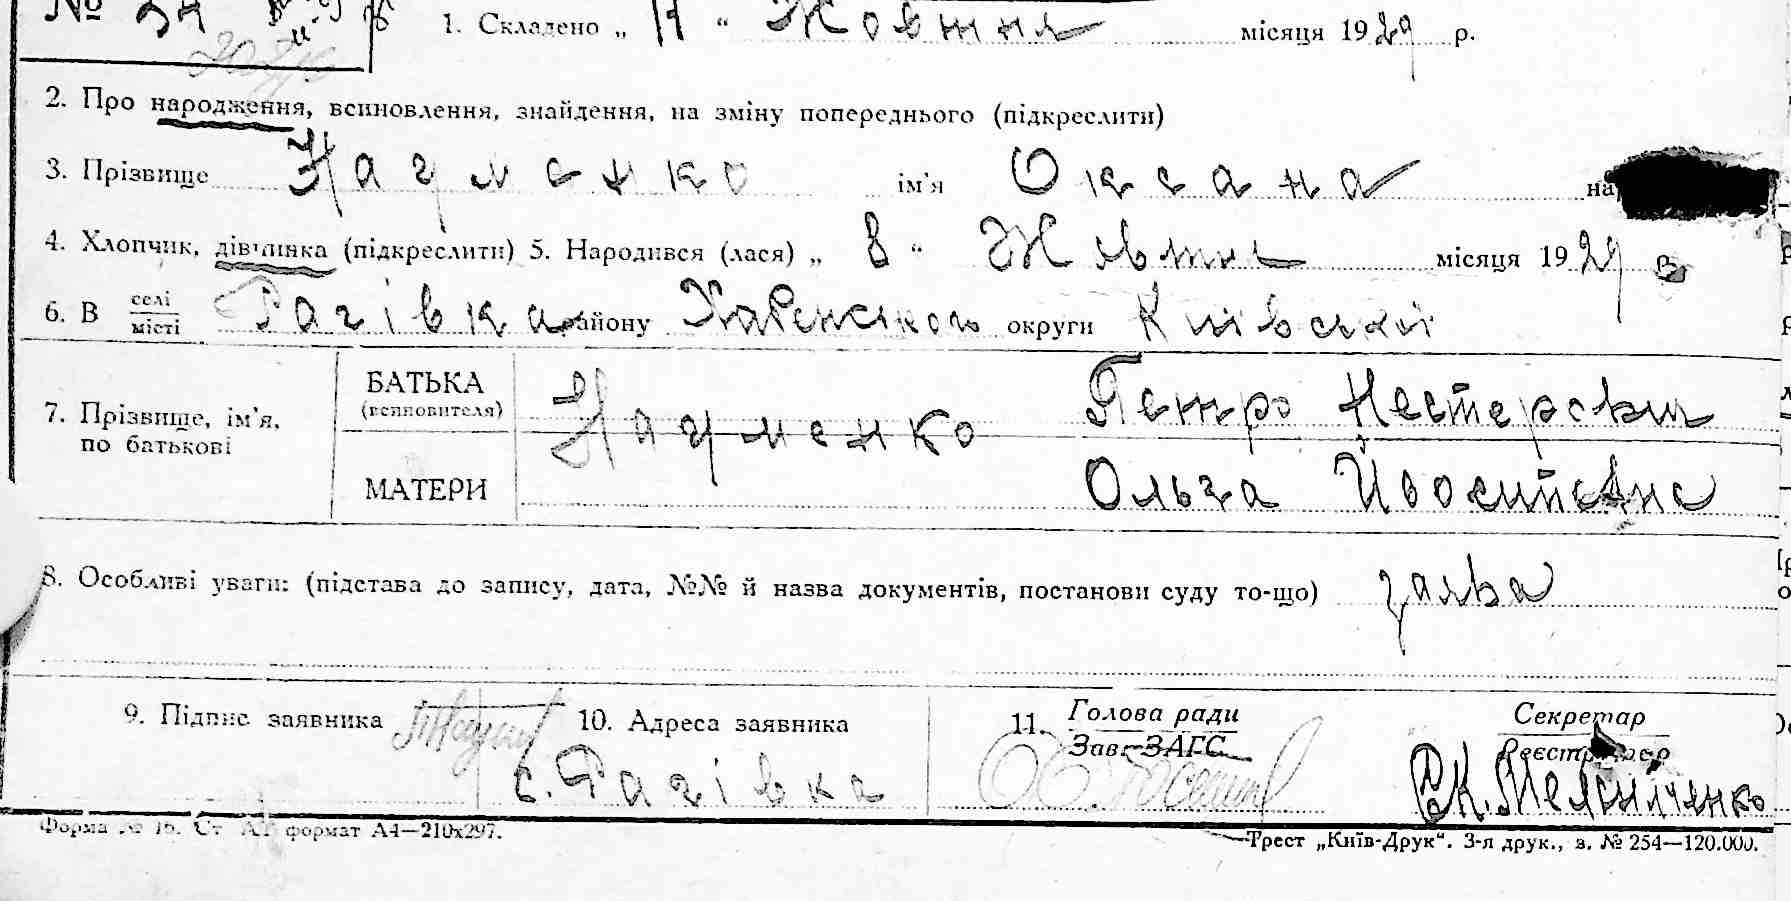 № 34
1. Складено „ 11 “ Жовтня місяця 1929 р.
2. Про народження, всиновлення, знайдення, на зміну попереднього (підкреслити)
3. Прізвище Науменко ім’я Оксана на
4. Хлопчик, дівчинка (підкреслити) 5. Народився (лася) „ 8 “ Жовтня місяця 1929 р.
6. В селі/місті Рагівка району Хабенського округи Київської
7. Прізвище, ім’я, по батькові
БАТЬКА (всиновителя) Науменко Петро Нестерович
МАТЕРИ Ольга Йосипівна
8. Особливі уваги: (підстава до запису, дата, №№ й назва документів, постанови суду то-що) заява
9. Підпис заявника 10. Адреса заявника 11. Голова ради Секретар
Зав. ЗАГС Реєстратор
с. Рагівка Мельниченко
Форма № 16. Ст. А1 формат А4—210x297. Трест „Київ-Друк“. 3-я друк., з. № 254—120.000.